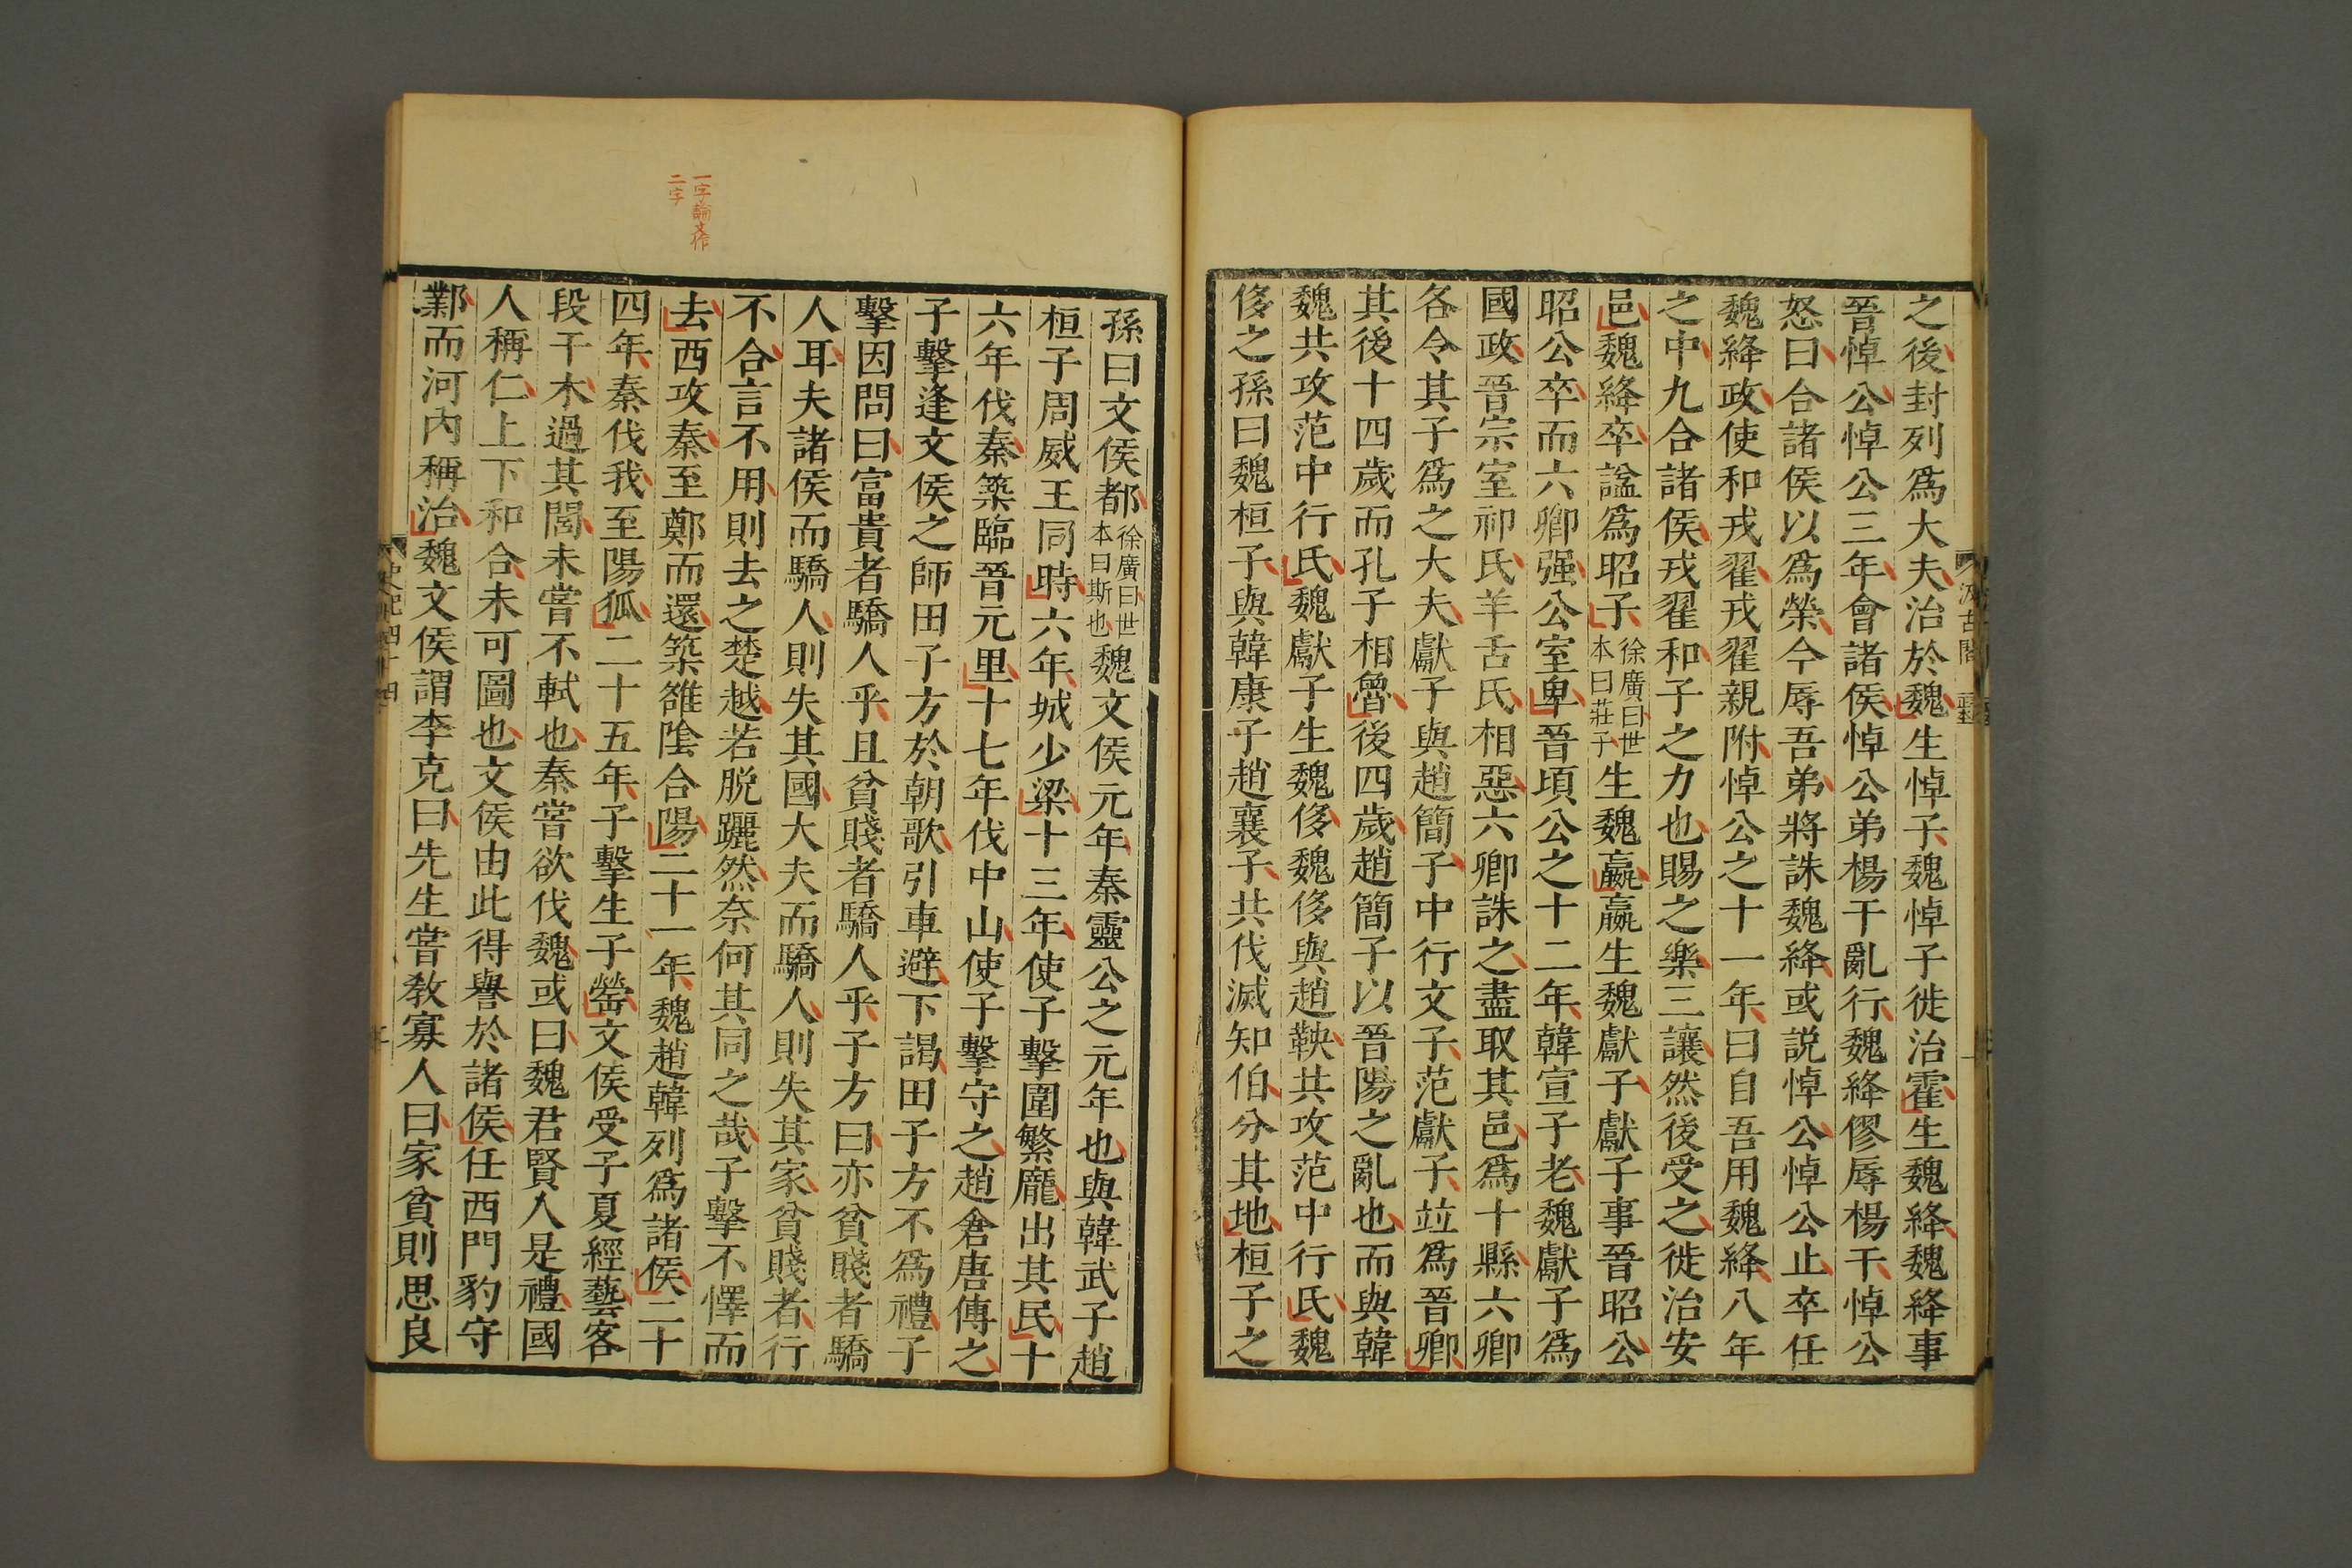 之後封列爲大夫治於魏生悼子魏悼子徙治霍生魏絳魏絳事
晉悼公悼公三年會諸侯悼公弟楊干亂行魏絳僇辱楊干悼公
怒曰合諸侯以爲榮今辱吾弟將誅魏絳或説悼公悼公止卒任
魏絳政使和戎翟戎翟親附悼公之十一年曰自吾用魏絳八年
之中九合諸侯戎翟和子之力也賜之樂三讓然後受之徙治安
邑魏絳卒諡爲昭子徐廣曰世本曰莊子生魏嬴嬴生魏獻子獻子事晉昭公
昭公卒而六卿强公室卑晉頃公之十二年韓宣子老魏獻子爲
國政晉宗室祁氏羊舌氏相惡六卿誅之盡取其邑爲十縣六卿
各令其子爲之大夫獻子與趙簡子中行文子范獻子竝爲晉卿
其後十四歲而孔子相魯後四歲趙簡子以晉陽之亂也而與韓
魏共攻范中行氏魏獻子生魏侈魏侈與趙鞅共攻范中行氏魏
侈之孫曰魏桓子與韓康子趙襄子共伐滅知伯分其地桓子之
汲古閣
孫曰文侯都徐廣曰世本曰斯也魏文侯元年秦靈公之元年也與韓武子趙
桓子周威王同時六年城少梁十三年使子擊圍繁龐出其民十
六年伐秦築臨晉元里十七年伐中山使子擊守之趙倉唐傳之
子擊逢文侯之師田子方於朝歌引車避下謁田子方不爲禮子
擊因問曰富貴者驕人乎且貧賤者驕人乎子方曰亦貧賤者驕
人耳夫諸侯而驕人則失其國大夫而驕人則失其家貧賤者行
不合言不用則去之楚越若脱躧然奈何其同之哉子擊不懌而
去西攻秦至鄭而還築雒陰合陽二十一年魏趙韓列爲諸侯二十
四年秦伐我至陽狐二十五年子擊生子罃文侯受子夏經藝客
段干木過其閭未嘗不軾也秦嘗欲伐魏或曰魏君賢人是禮國
人稱仁上下和合未可圖也文侯由此得譽於諸侯任西門豹守
鄴而河内稱治魏文侯謂李克曰先生嘗敎寡人曰家貧則思良
史記四十四
一字論文作
二字